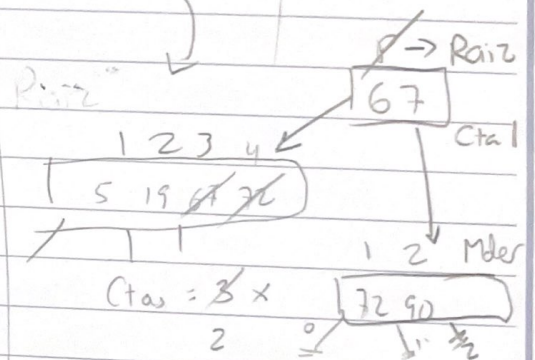 P → Raiz
Raiz
67
Cta 1
1 2 3 4
5 19 67 72
1 2 Mder
Ctas = 3 x
72 90
2
0 1 2